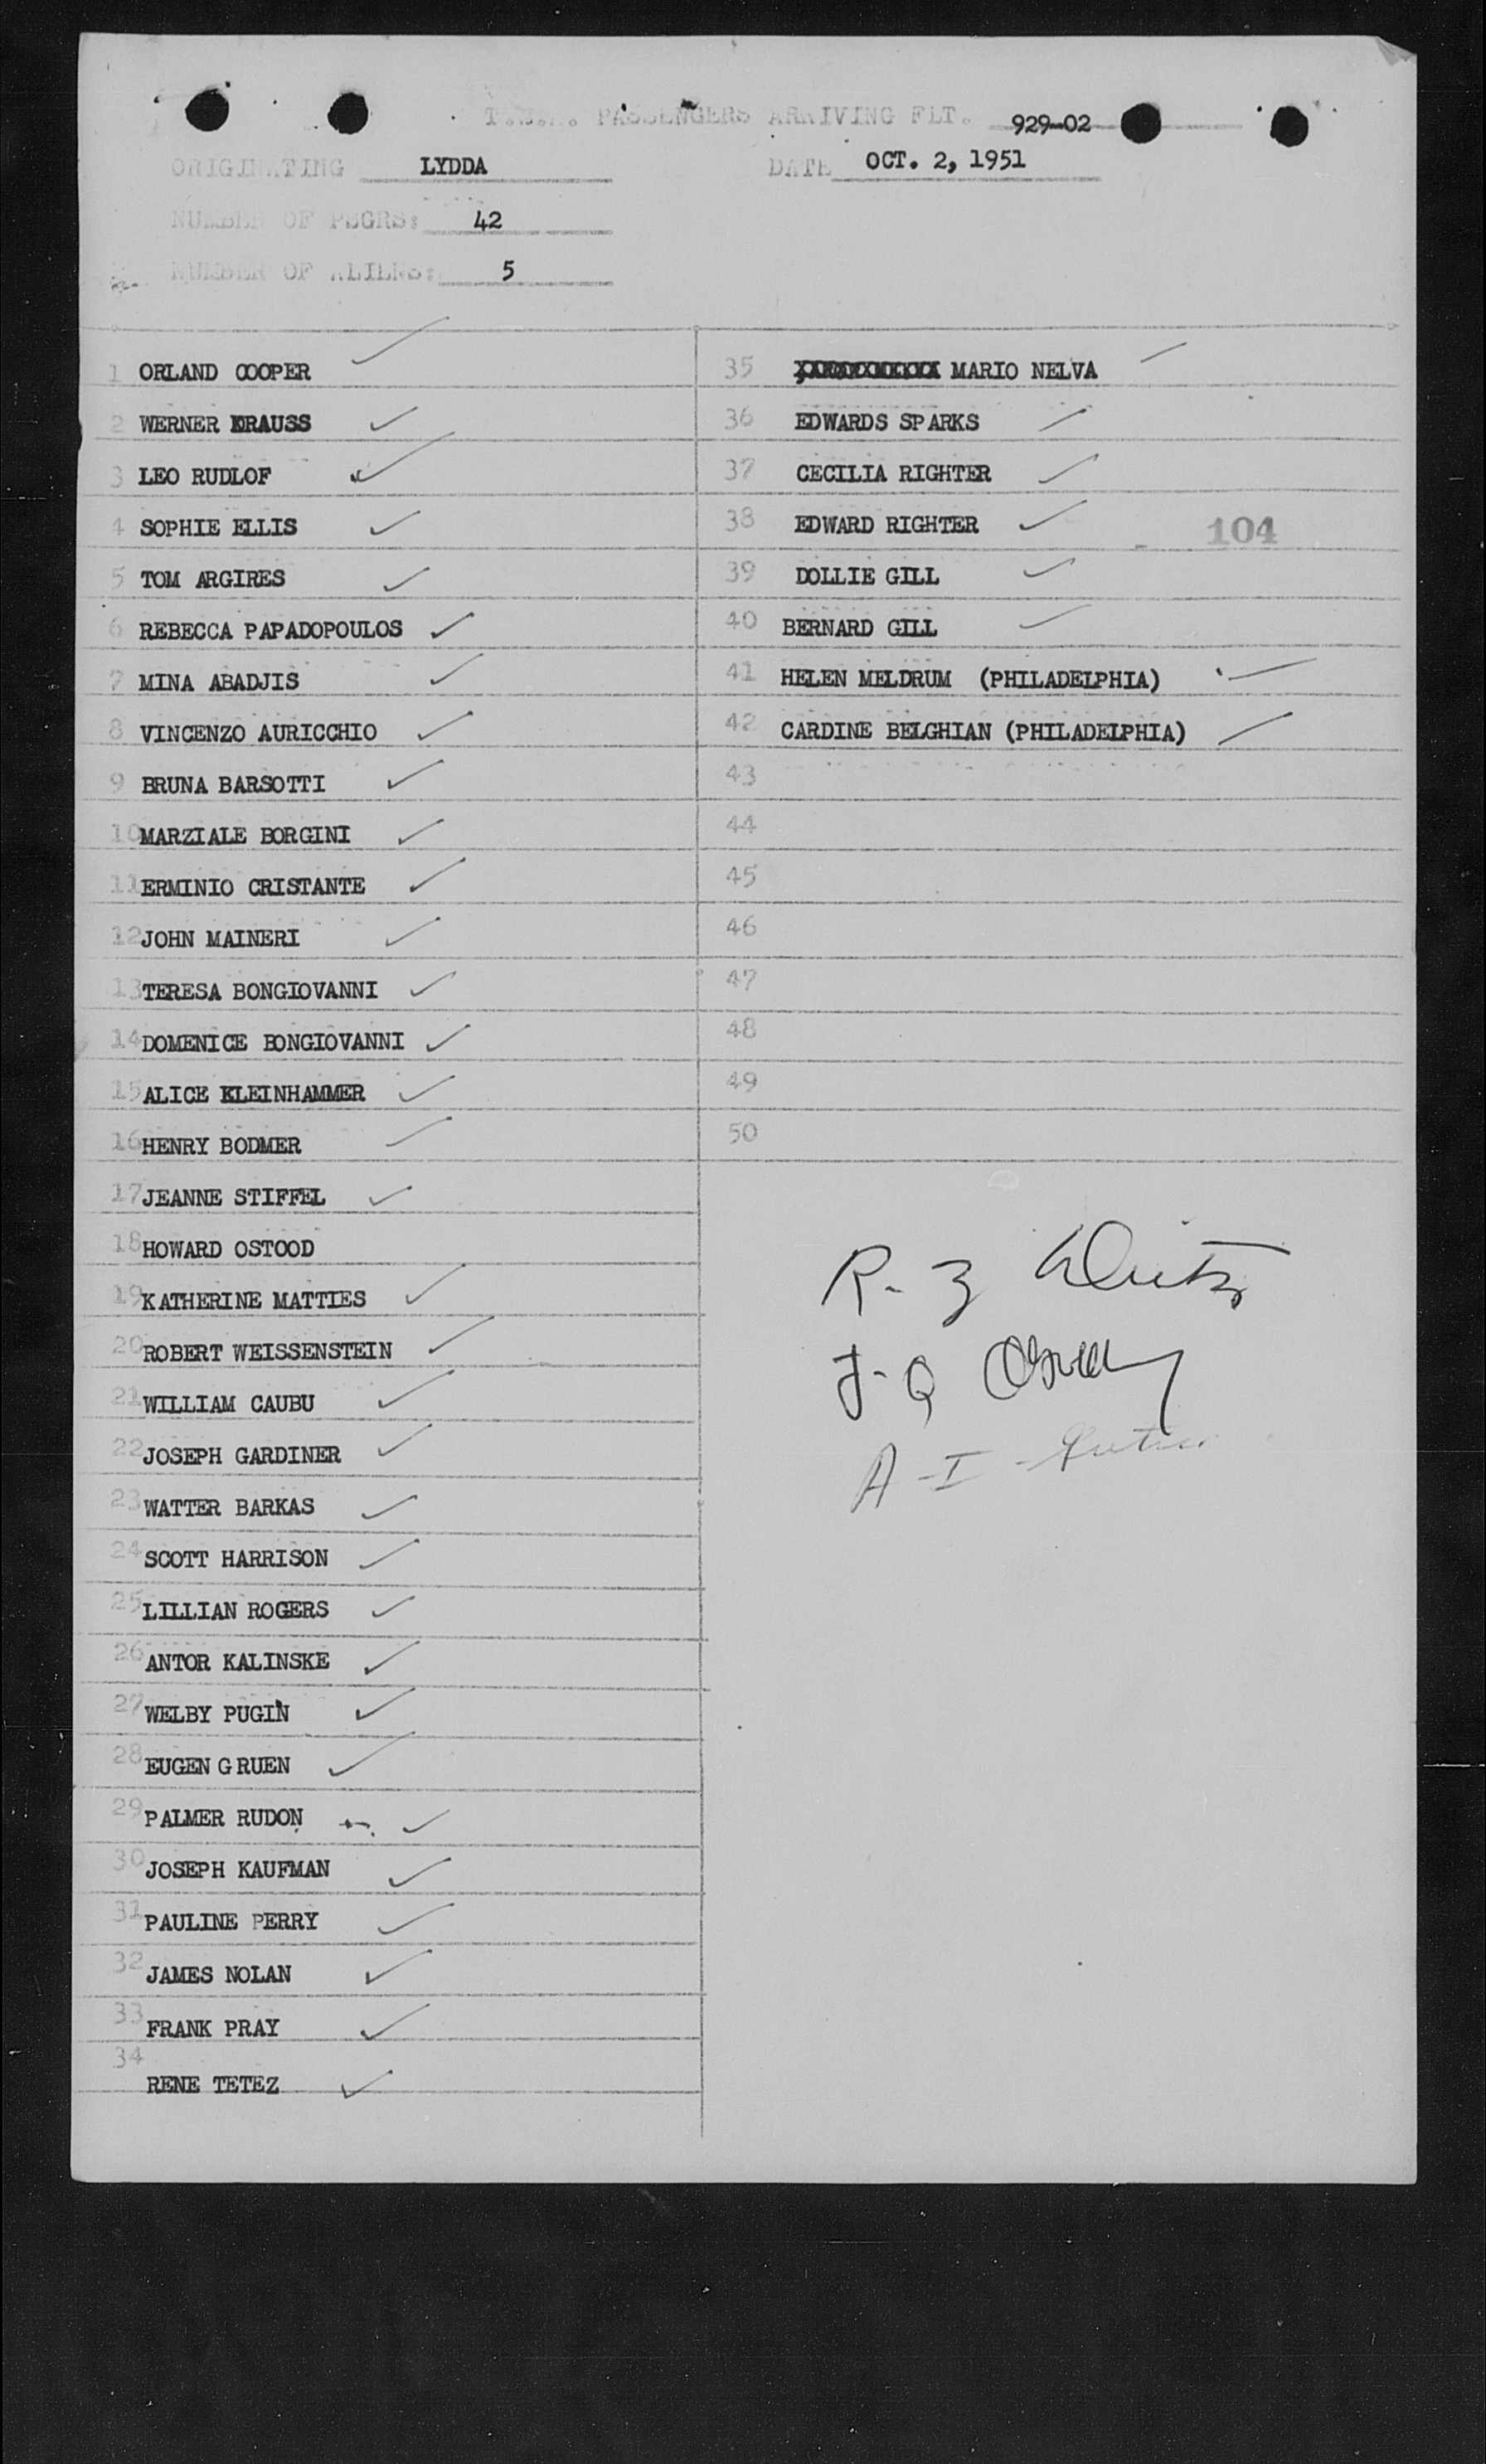 PASSENGERS ARRIVING FLT. 929-02
ORIGINATING LYDDA DATE OCT. 2, 1951
NUMBER OF PSGRS: 42
NUMBER OF ALIENS: 5
1 ORLAND COOPER
2 WERNER KRAUSS
3 LEO RUDLOF
4 SOPHIE ELLIS
5 TOM ARGIRES
6 REBECCA PAPADOPOULOS
7 MINA ABADJIS
8 VINCENZO AURICCHIO
9 BRUNA BARSOTTI
10 MARZIALE BORGINI
11 ERMINIO CRISTANTE
12 JOHN MAINERI
13 TERESA BONGIOVANNI
14 DOMENICE BONGIOVANNI
15 ALICE KLEINHAMMER
16 HENRY BODMER
17 JEANNE STIFFEL
18 HOWARD OSTOOD
19 KATHERINE MATTIES
20 ROBERT WEISSENSTEIN
21 WILLIAM CAUBU
22 JOSEPH GARDINER
23 WATTER BARKAS
24 SCOTT HARRISON
25 LILLIAN ROGERS
26 ANTOR KALINSKE
27 WELBY PUGIN
28 EUGEN GRUEN
29 PALMER RUDON
30 JOSEPH KAUFMAN
31 PAULINE PERRY
32 JAMES NOLAN
33 FRANK PRAY
34 RENE TETEZ
35 MARIO NELVA
36 EDWARDS SPARKS
37 CECILIA RIGHTER
38 EDWARD RIGHTER
104
39 DOLLIE GILL
40 BERNARD GILL
41 HELEN MELDRUM (PHILADELPHIA)
42 CARDINE BELGHIAN (PHILADELPHIA)
43
44
45
46
47
48
49
50
R. 3
J. Q
A - I -